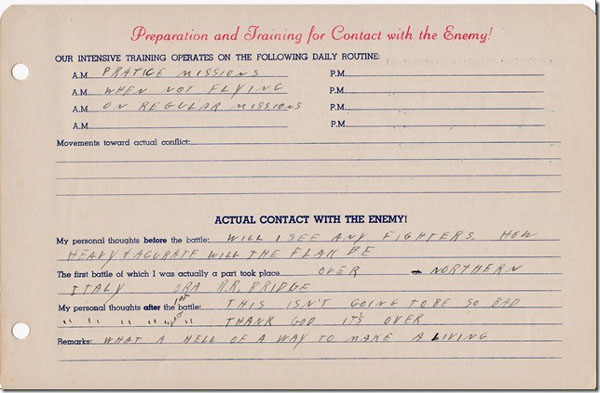 Preparation and Training for Contact with the Enemy!
OUR INTENSIVE TRAINING OPERATES ON THE FOLLOWING DAILY ROUTINE:
A.M. PRATICE MISSIONS P.M.
A.M. WHEN NOT FLYING P.M.
A.M. ON REGULAR MISSIONS P.M.
A.M. P.M.
Movements toward actual conflict:
ACTUAL CONTACT WITH THE ENEMY!
My personal thoughts before the battle: WILL I SEE ANY FIGHTERS. HOW
HEAVY & ACURATE WILL THE FLAK BE
The first battle of which I was actually a part took place OVER NORTHERN
ITALY ORA R.R. BRIDGE
My personal thoughts after the 1ST battle: THIS ISN'T GOING TO BE SO BAD
" " " " " LAST " THANK GOD IT'S OVER
Remarks: WHAT A HELL OF A WAY TO MAKE A LIVING